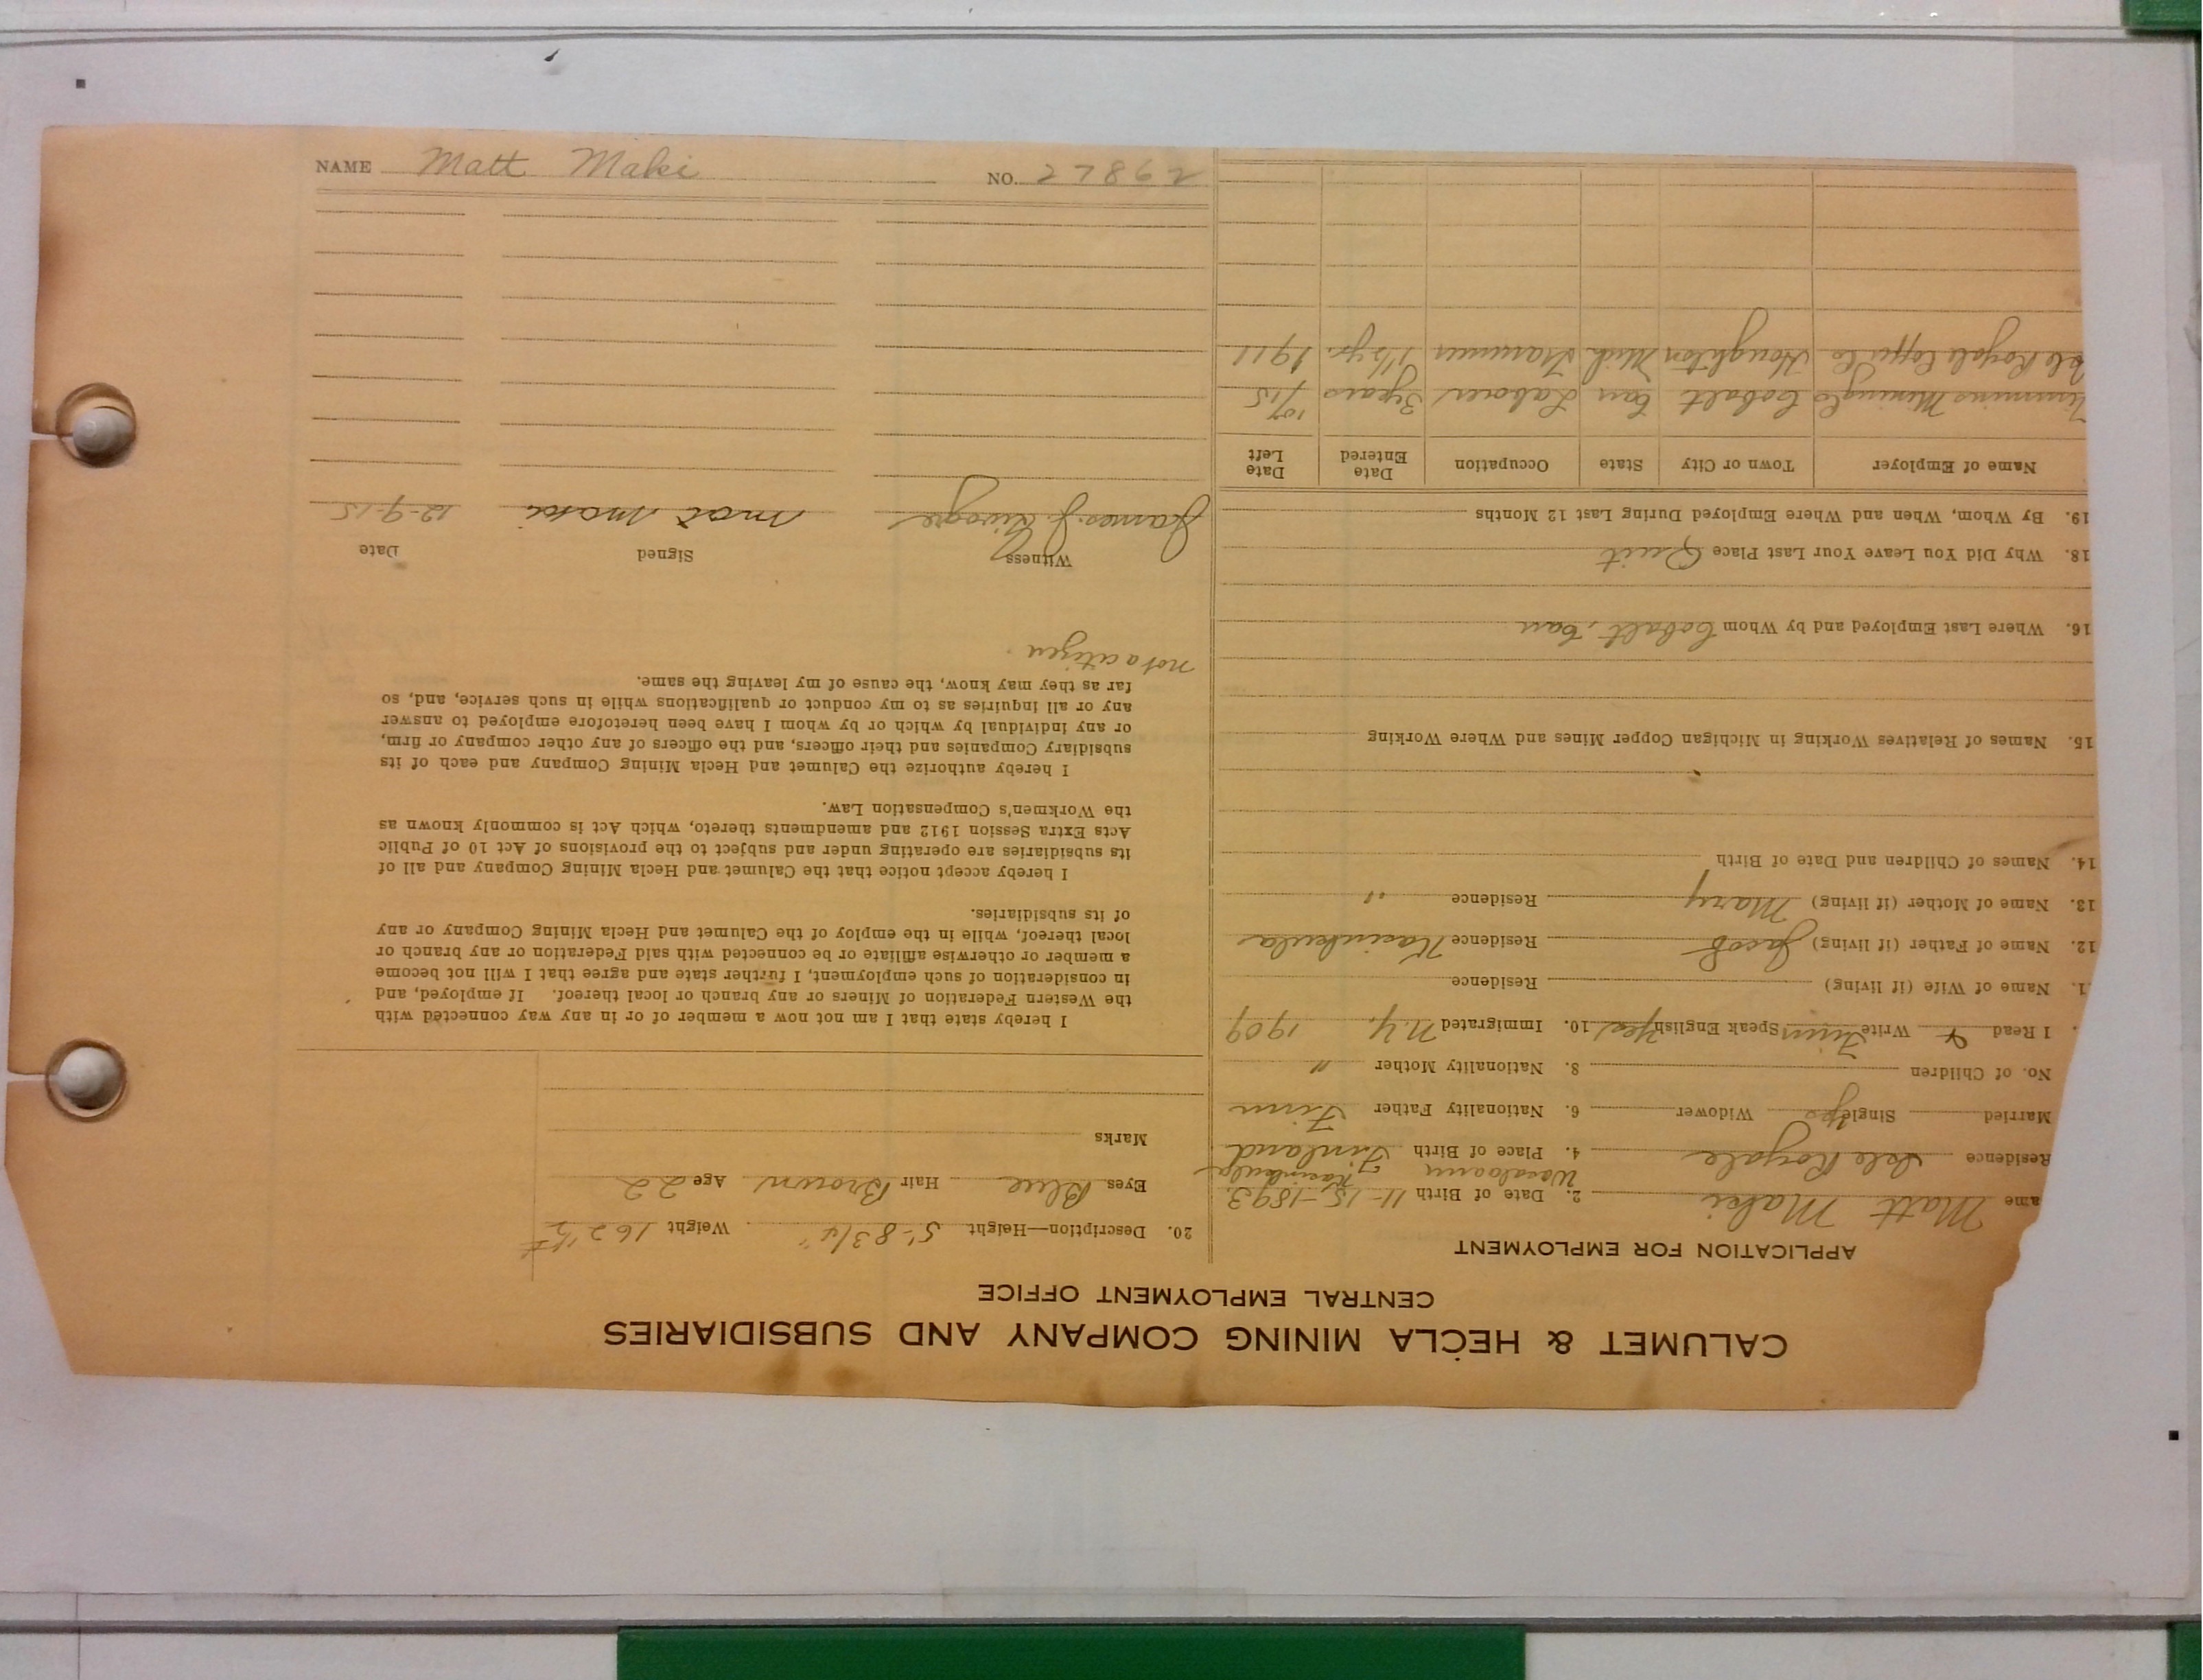 CALUMET & HECLA MINING COMPANY AND SUBSIDIARIES
CENTRAL EMPLOYMENT OFFICE
APPLICATION FOR EMPLOYMENT
ame Matt Maki 2. Date of Birth 11-15-1893
Residence Isle Royale 4. Place of Birth Finland
Married Single yes Widower 6. Nationality Father Finn
No. of Children 8. Nationality Mother "
I Read & Write Finn Speak English Yes 10. Immigrated N.Y. 1909
1. Name of Wife (if living) Residence
12. Name of Father (if living) Jacob Residence
13. Name of Mother (if living) Mary Residence "
14. Names of Children and Date of Birth
15. Names of Relatives Working in Michigan Copper Mines and Where Working
16. Where Last Employed and by Whom Cobalt, Can
18. Why Did You Leave Your Last Place Quit
19. By Whom, When and Where Employed During Last 12 Months
Name of Employer Town or City State Occupation Date Entered Date Left
Timmins Mining Co Cobalt Can Laborer 3 years 10/15
Isle Royale Copper Co Houghton Mich Trammer 1½ yr. 1911
20. Description—Height 5'-8 3/4" Weight 162 ½ #
Eyes Blue Hair Brown Age 22
Marks
I hereby state that I am not now a member of or in any way connected with
the Western Federation of Miners or any branch or local thereof. If employed, and
in consideration of such employment, I further state and agree that I will not become
a member or otherwise affiliate or be connected with said Federation or any branch or
local thereof, while in the employ of the Calumet and Hecla Mining Company or any
of its subsidiaries.
I hereby accept notice that the Calumet and Hecla Mining Company and all of
its subsidiaries are operating under and subject to the provisions of Act 10 of Public
Acts Extra Session 1912 and amendments thereto, which Act is commonly known as
the Workmen's Compensation Law.
I hereby authorize the Calumet and Hecla Mining Company and each of its
subsidiary Companies and their officers, and the officers of any other company or firm,
or any individual by which or by whom I have been heretofore employed to answer
any or all inquiries as to my conduct or qualifications while in such service, and, so
far as they may know, the cause of my leaving the same.
not a citizen
Witness Signed Date
James J. mat maki 12-9-15
NAME Matt Maki NO. 27862